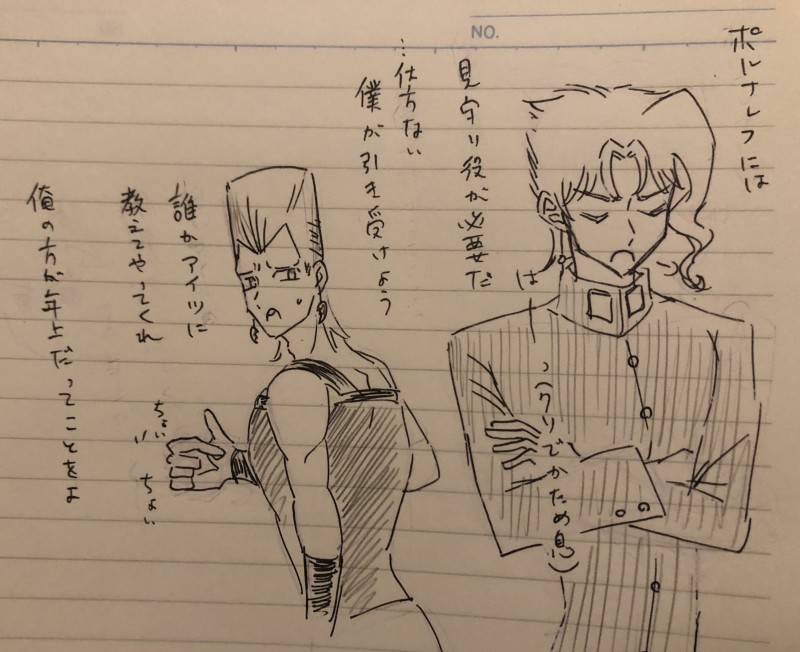 NO.
ポルナレフには
見守り役が必要だ
…仕方ない
僕が引き受けよう
はーっ(クソでかため息)
誰かアイツに
教えてやってくれ
俺の方が年上だってことをよ
ちょい
ちょい